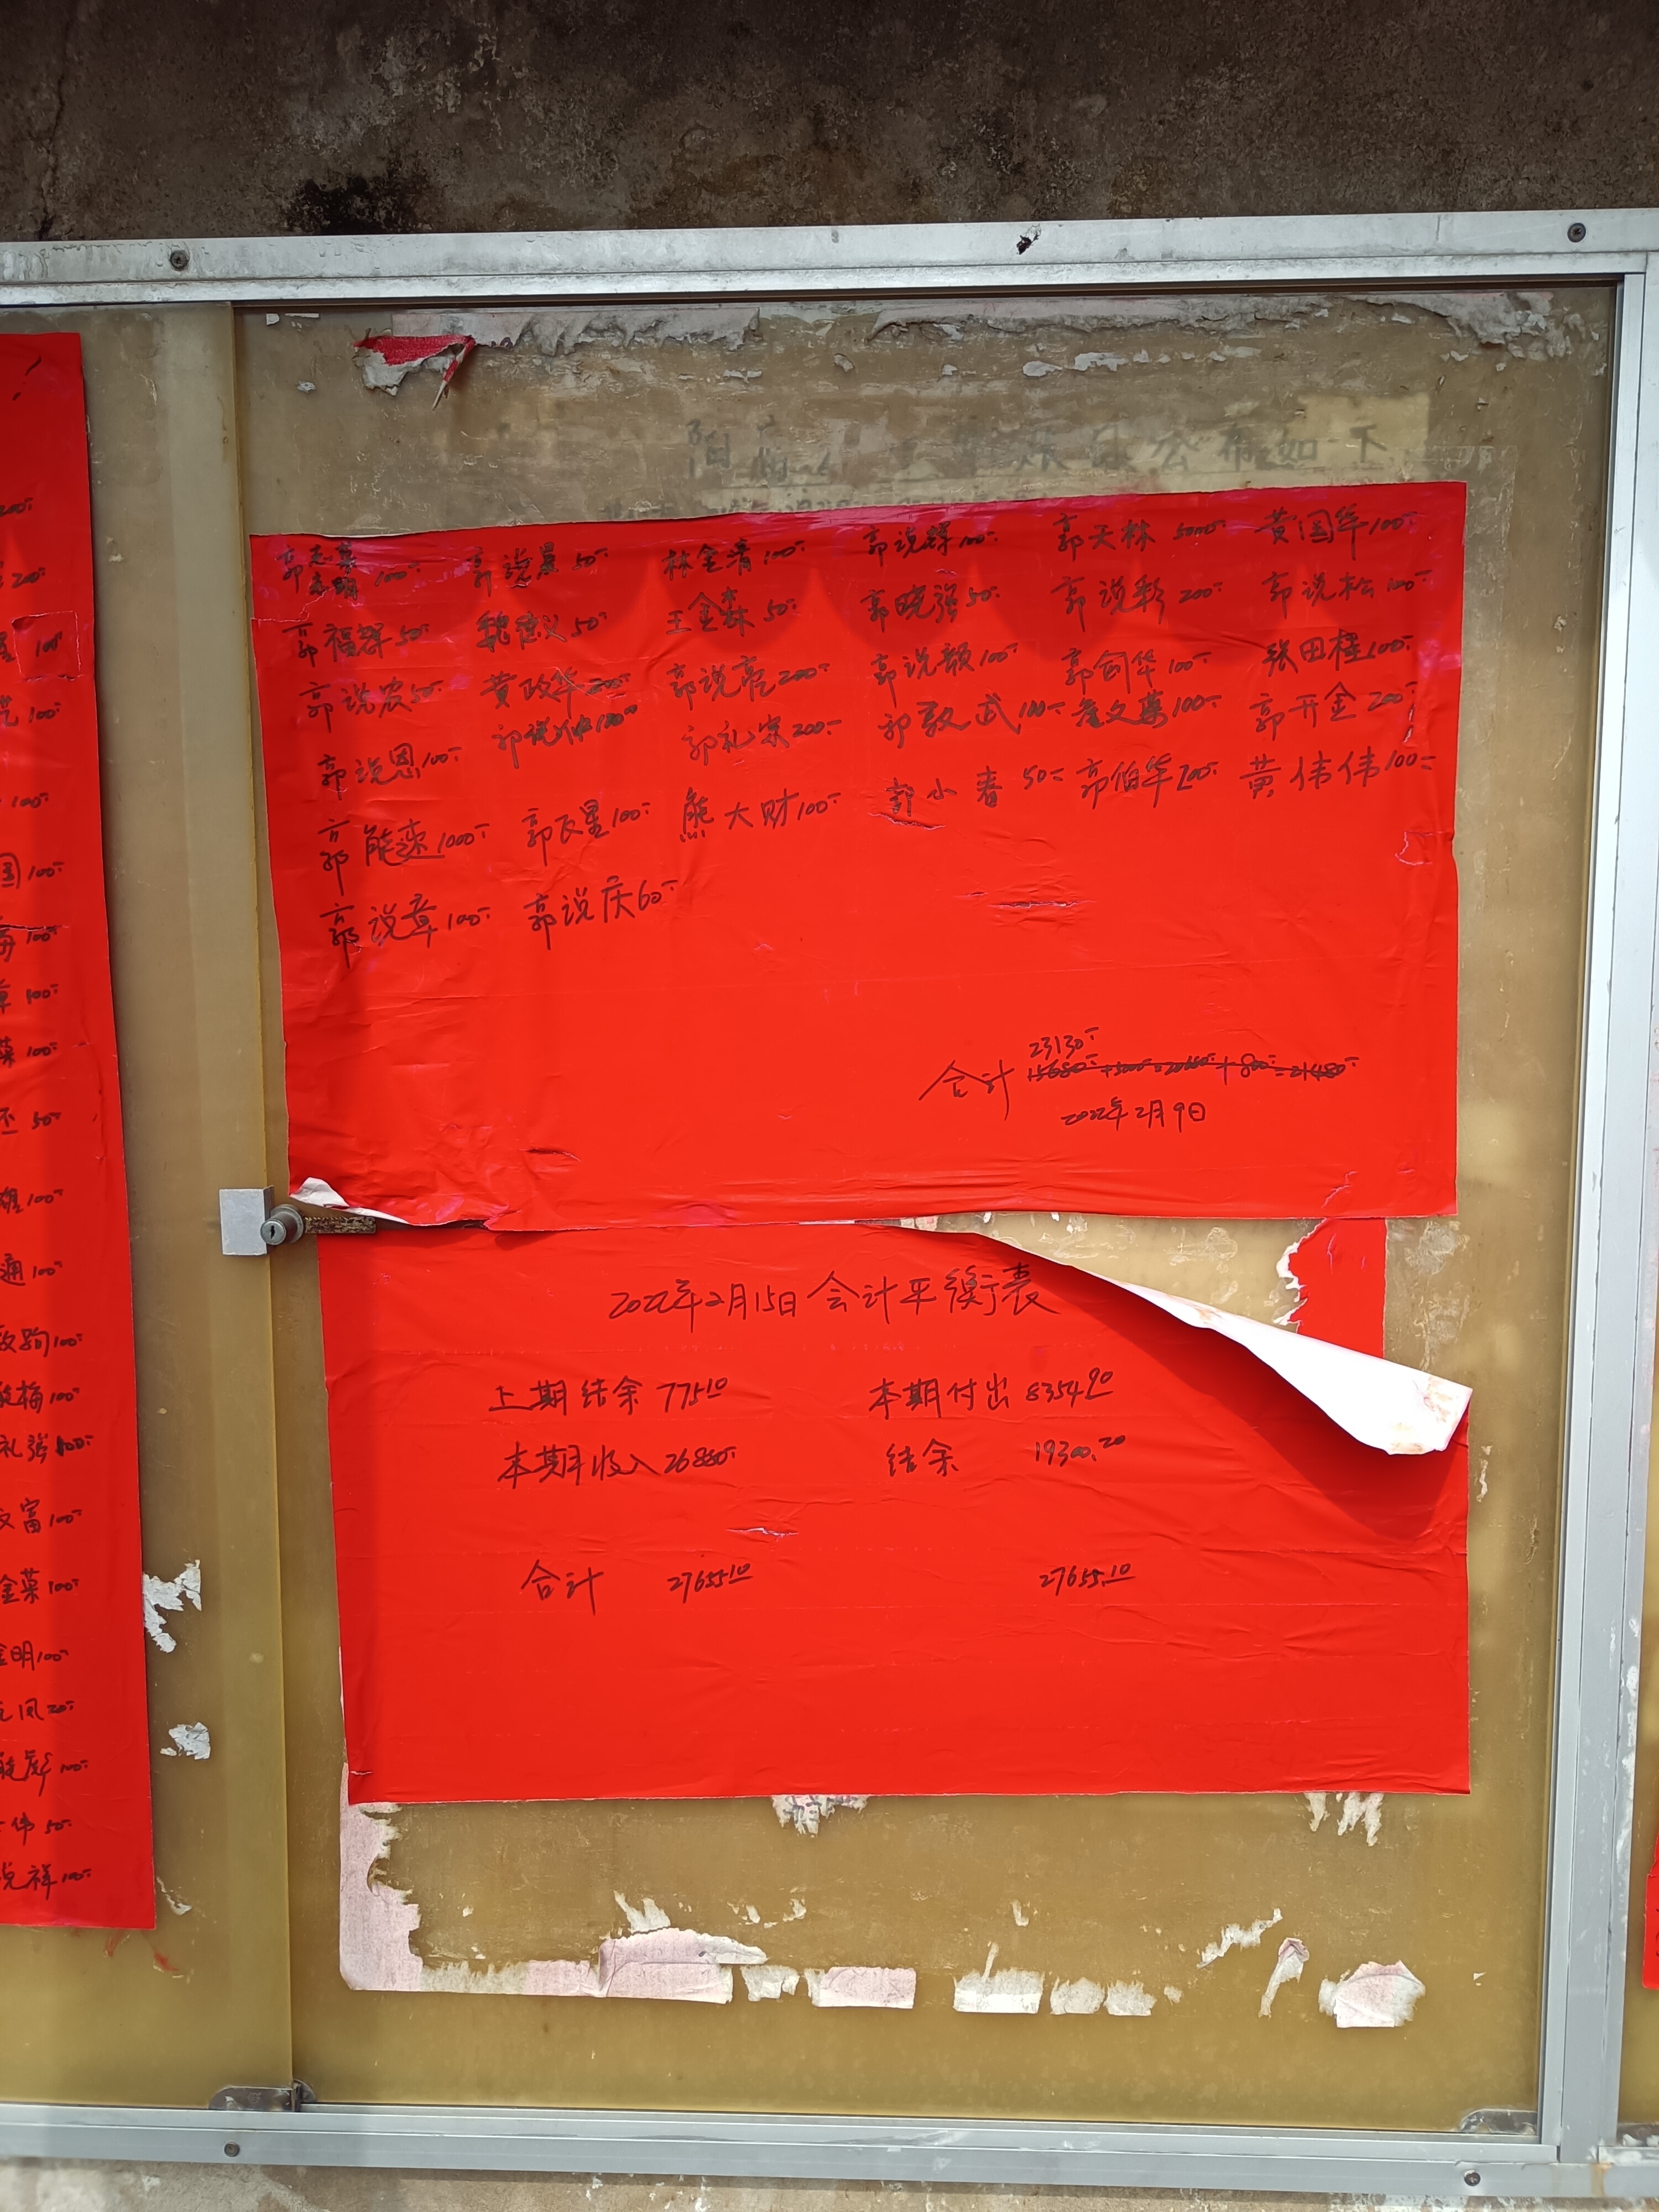 公布如下
郭志荣
郭志明 100 郭说景 50 林金清 100 郭说群 100 郭天林 5000 黄国华 100
郭福群 50 魏德义 50 王金森 50 郭晓强 50 郭说彩 200 郭说松 100
郭说农 50 黄政华 200 郭说亮 200 郭说额 100 郭剑华 100 张田桂 100
郭说恩 100 郭说仲 100 郭礼宗 200 郭敦武 100 文荣 100 郭开金 200
郭能 1000 郭民星 100 熊大财 100 郭小春 50 郭伯华 黄伟伟 100
郭说章 100 郭说庆 60
23130
合计 15680+5000=20680+800=21480
2022年2月9日
2022年2月15日会计平衡表
上期结余 775.10 本期付出 8354.90
本期收入 26880 结余 19300.20
合计 27655.10 27655.10
200
200
100
100
100
国 100
100
章 100
菜 100
50
雄 100
通 100
敦驹 100
能梅 100
礼强 100
文富 100
金菜 100
金明 100
凤 20
能彪 100
伟 50
说祥 100